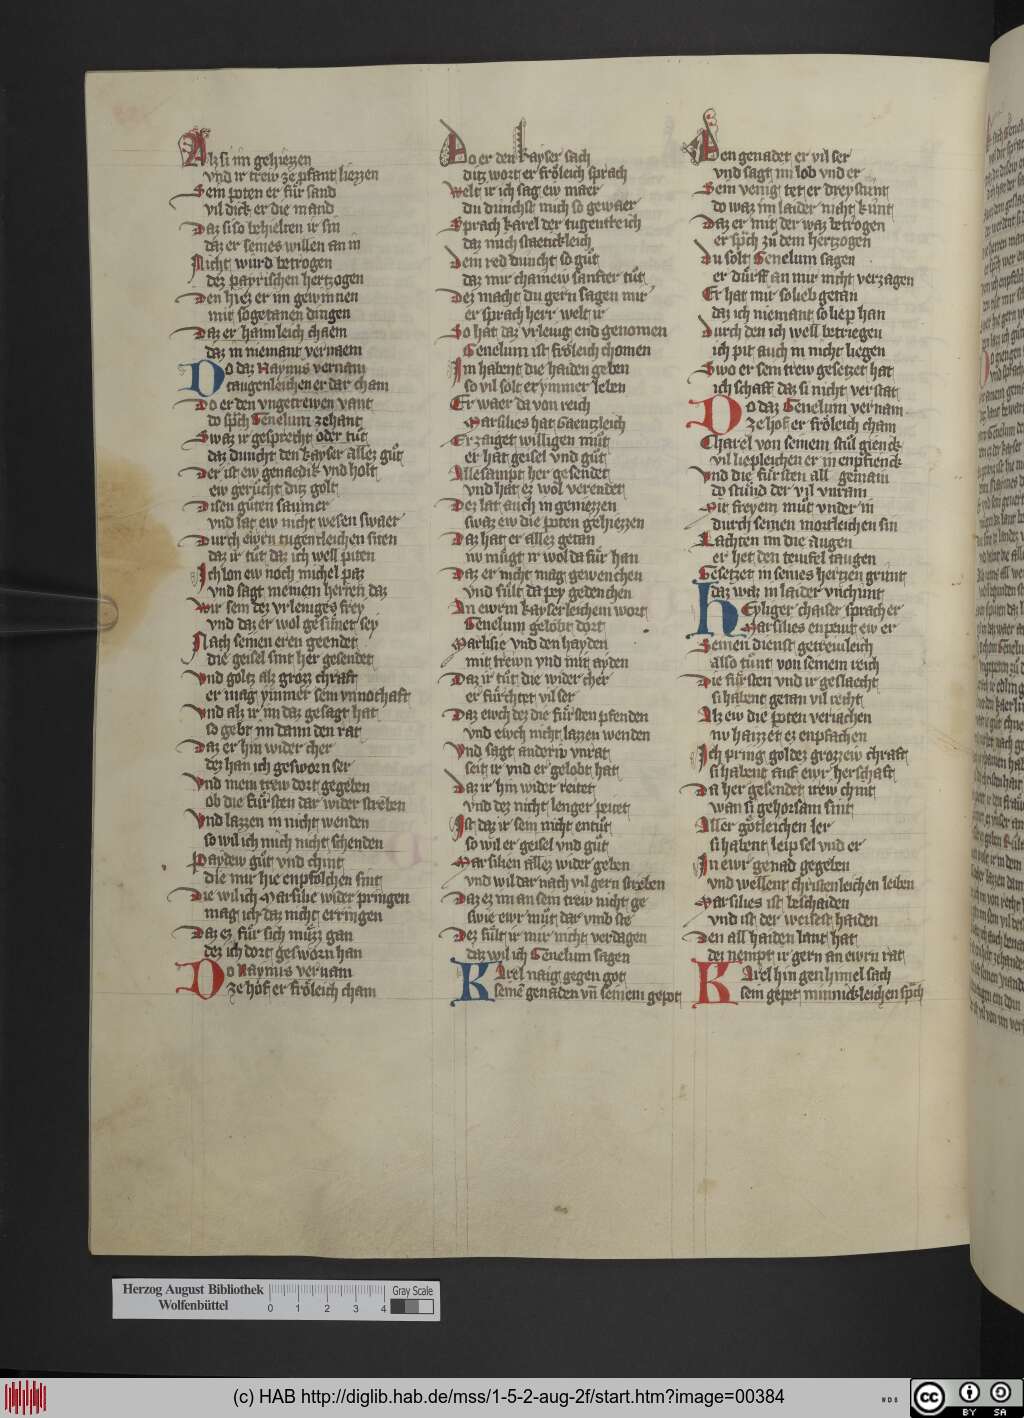 Alz si im gehiezzen
vnd ir trew ze pfant liezzen
Sein poten er für sand
vil dick er die mand
Daz si so behielten ir sin
daz er seines willen an in
Nicht würd betrogen
dez payrischen hertzogen
Den hiez er im gewinnen
mit sogetanen dingen
Daz er haimleich chaem
daz in niemant vernaem
Do daz Naymus vernam
taugenleichen er dar cham
Do er den vngetrewen vant
do sp̄ch Genelum zehant
Swaz ir gesprecht oder tůt
daz dunckt den kayser allez gůt
Der ist ew genaedik vnd holt
ew gerucht ditz golt
Disen gůten saumer
vnd lat ew nicht wesen swaer
Durch ewrn tugentleichen siten
daz ir tůt daz ich well piten
Ich lon ew noch michel paz
vnd sagt meinem herren daz
Wir sein dez vrleuges frey
vnd daz er wol gesunet sey
Nach seinen eren geendet
die geisel sint her gesendet
Vnd goltz alz grozz chraft
er mag ymmer sein vnnothaft
Vnd alz ir im daz gesagt hat
so gebt im dann den rat
Daz er hin wider cher
dez han ich gesworn ser
Vnd mein trew dort gegeben
ob die fürsten dar wider streben
Vnd lazzen in nicht wenden
so wil ich mich nicht schenden
Paydew gůt vnd chint
die mir hie enpfolchen sint
Die wil ich Marsilie wider pringen
mag ich daz nicht erringen
Daz ez für sich müzz gan
dez ich dort gesworn han
Do Naymus vernam
ze hof er fröleich cham
Do er den kayser sach
ditz wort er fröleich sprach
Welt ir ich sag ew maer
du dunchst mich so gewaer
Sprach karel der tugentreich
daz mich staetichleich
Dein red duncht so gůt
daz mir chainew sanfter tůt
Dez macht du gern sagen mir
er sprach herr welt ir
So hat daz vrleug end genomen
Genelum ist fröleich chomen
Im habent die haiden geben
so vil solt er ymmer leben
Er waer da von reich
Marsilies hat gaentzleich
Erzaiget willigen můt
er hat geisel vnd gůt
Allesampt her gesendet
vnd hat ez wol verendet
Dez lat auch in geniezzen
swaz ew die poten gehiezzen
Daz hat er allez getan
nv mügt ir wol da für han
Daz er nicht mag gewenchen
vnd sült da pey gedenchen
An ewrm kayserleichem wort
Genelum gelobt dort
Marsilie vnd den hayden
mit trewn vnd mit ayden
Daz ir tůt die wider cher
er fürchtet vil ser
Daz ewch dez die fürsten pfenden
vnd ewch nicht lazzen wenden
Vnd sagt anderm vnrat
seit ir vnd er gelobt hat
Daz ir hin wider reitet
vnd dez nicht lenger peitet
Ist daz ir sein nicht entůt
so wil er geisel vnd gůt
Marsilien allez wider geben
vnd wil dar nach vil gern streben
Daz ez im an sein trew nicht ge
swie ewr můt dar vmb ste
Dez sült ir mir nicht verdagen
daz wil ich Genelum sagen
Karel naig gegen got
seinē genaden vn̄ seinem gepot
Den genadet er vil ser
vnd sagt im lob vnd er
Sein venig tet er dreystunt
do waz im laider nicht kunt
Daz er mit der waz betrogen
er sp̄ch zů dem hertzogen
Du solt Genelum sagen
er dürff an mir nicht verzagen
Er hat mir so lieb getan
daz ich niemant so liep han
Durch den ich well betriegen
ich pit auch in nicht liegen
Swo er sein trew gesetzet hat
ich schaff daz si nicht verstat
Do daz Genelum vernam
ze hof er fröleich cham
Charel von seinem stůl gienck
vil liepleichen er in enpfienck
Vnd die fürsten all gemain
do stůnd der vil vnrain
Mit freyem můt vnder in
durch seinen mortleichen sin
Lachten im die augen
er het den teufel taugen
Gesetzet in seines hertzen grunt
daz waz in laider vnchunt
Heyliger chaiser sprach er
Marsilies enpeut ew er
Seinen dienst getrewleich
also tůnt von seinem reich
Die fürsten vnd ir geslaecht
si habent getan vil recht
Alz ew die poten veriachen
nv haizzet ez enpfachen
Ich pring goldez grozzew chraft
si habent auf ewr herschaft
Da her gesendet irew chint
wan si gehorsam sint
Aller götleichen ler
si habent leip sel vnd er
In ewr genad gegeben
vnd wellent christenleichen leben
Marsilies ist beschaiden
vnd ist der weisest haiden
Den all haiden lant hat
dez nempt ir gern an ewrn rat
Karel hin gen himel sach
sein gepet minnickleichen sp̄ch
Herzog August Bibliothek
Wolfenbüttel
0 1 2 3 4
Gray Scale
(c) HAB http://diglib.hab.de/mss/1-5-2-aug-2f/start.htm?image=00384
cc BY SA